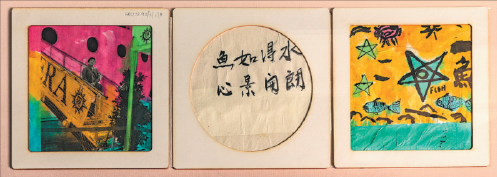 ERA
魚如得水
心景開朗
魚
FISH